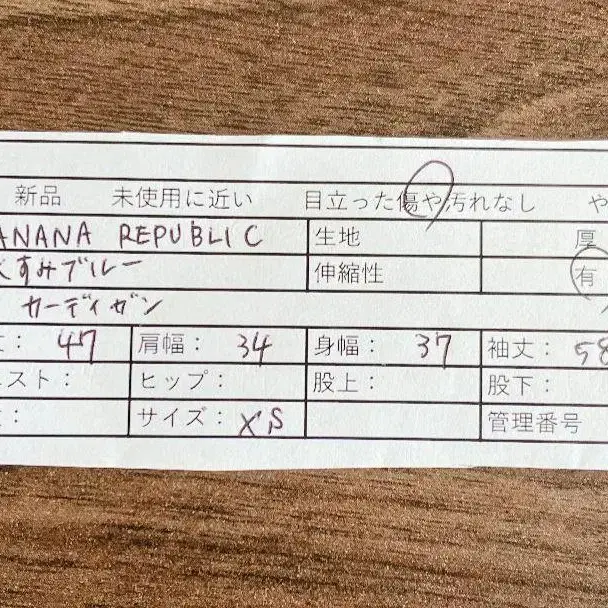 新品 未使用に近い 目立った傷や汚れなし や
ANANA REPUBLIC 生地 厚
くすみブルー 伸縮性 有
カーディガン
丈: 47 肩幅: 34 身幅: 37 袖丈: 58
エスト: ヒップ: 股上: 股下:
サイズ: XS 管理番号